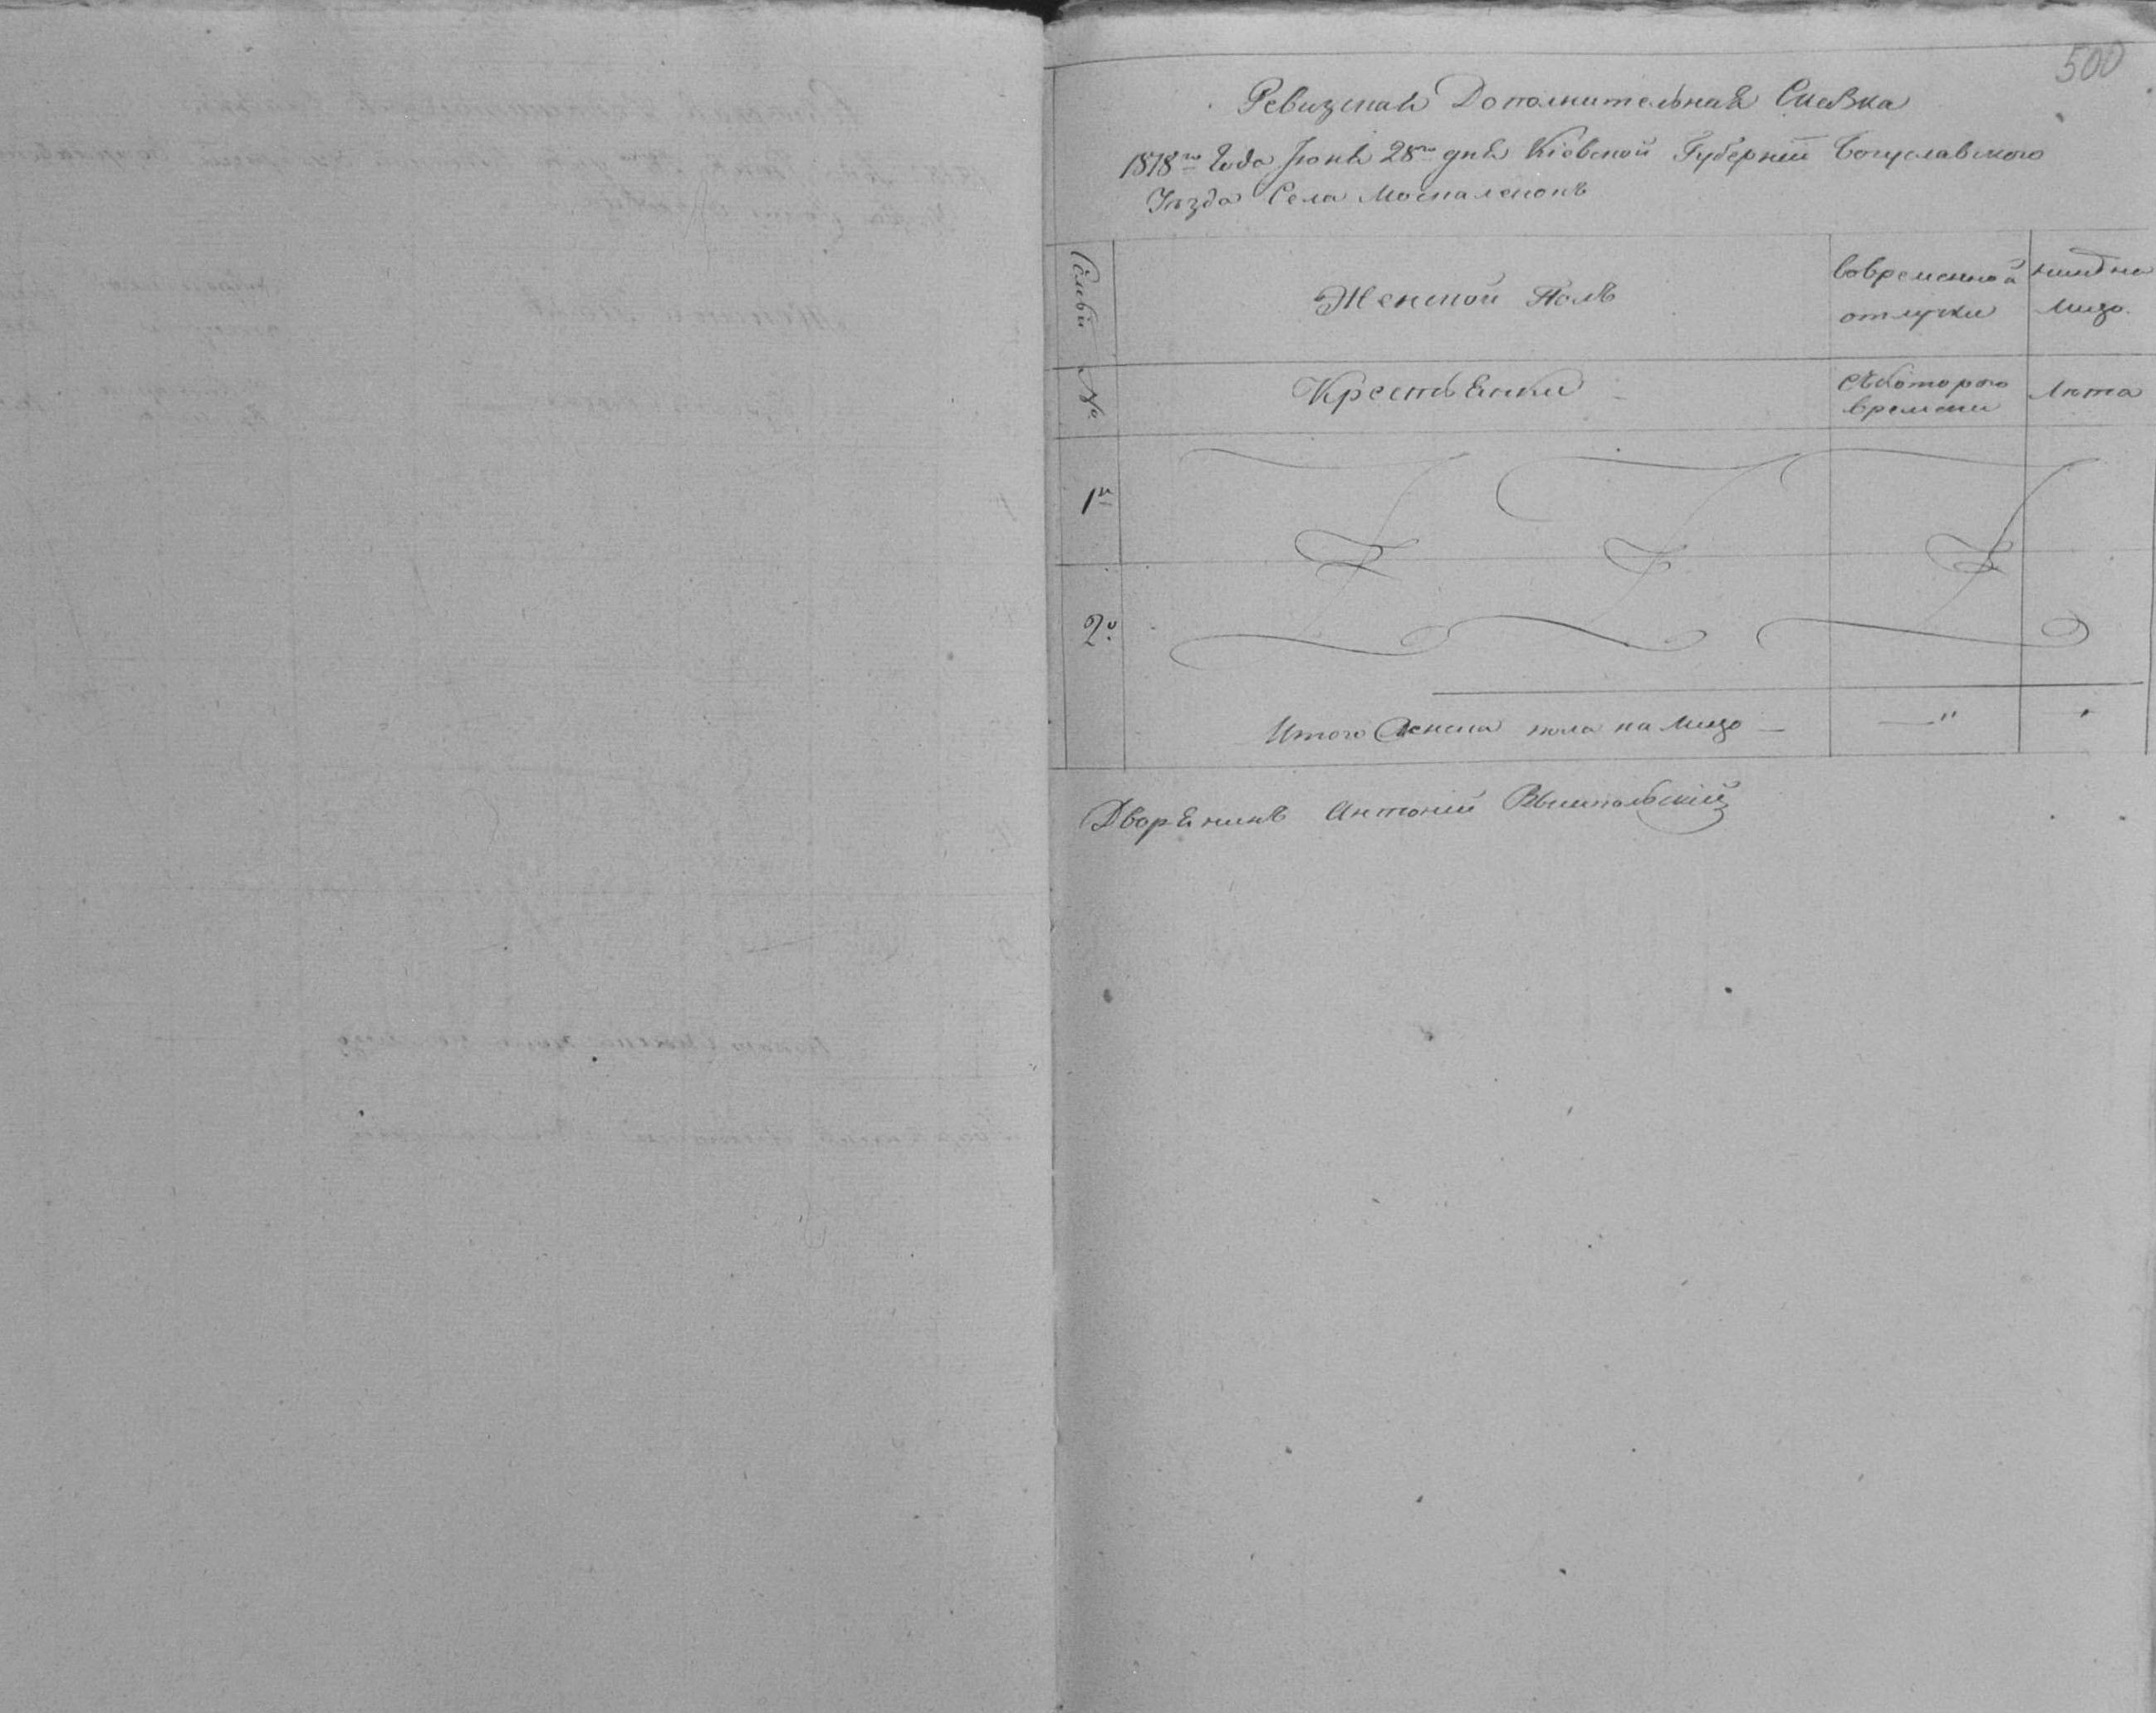 500
Ревизская Дополнительная Сказка
1818го Года Июня 28го дня Кіевской Губерніи Богуславского
Уѣзда Села Москаленокъ
Семьи
Женской Полъ
вовременной отлучки
нынѣ на лицо
№
Крестьянки
съ которого времени
Лѣта
1й
2й
Итого женска пола на лицо — — " "
Дворянинъ Антоній Вышпольскій